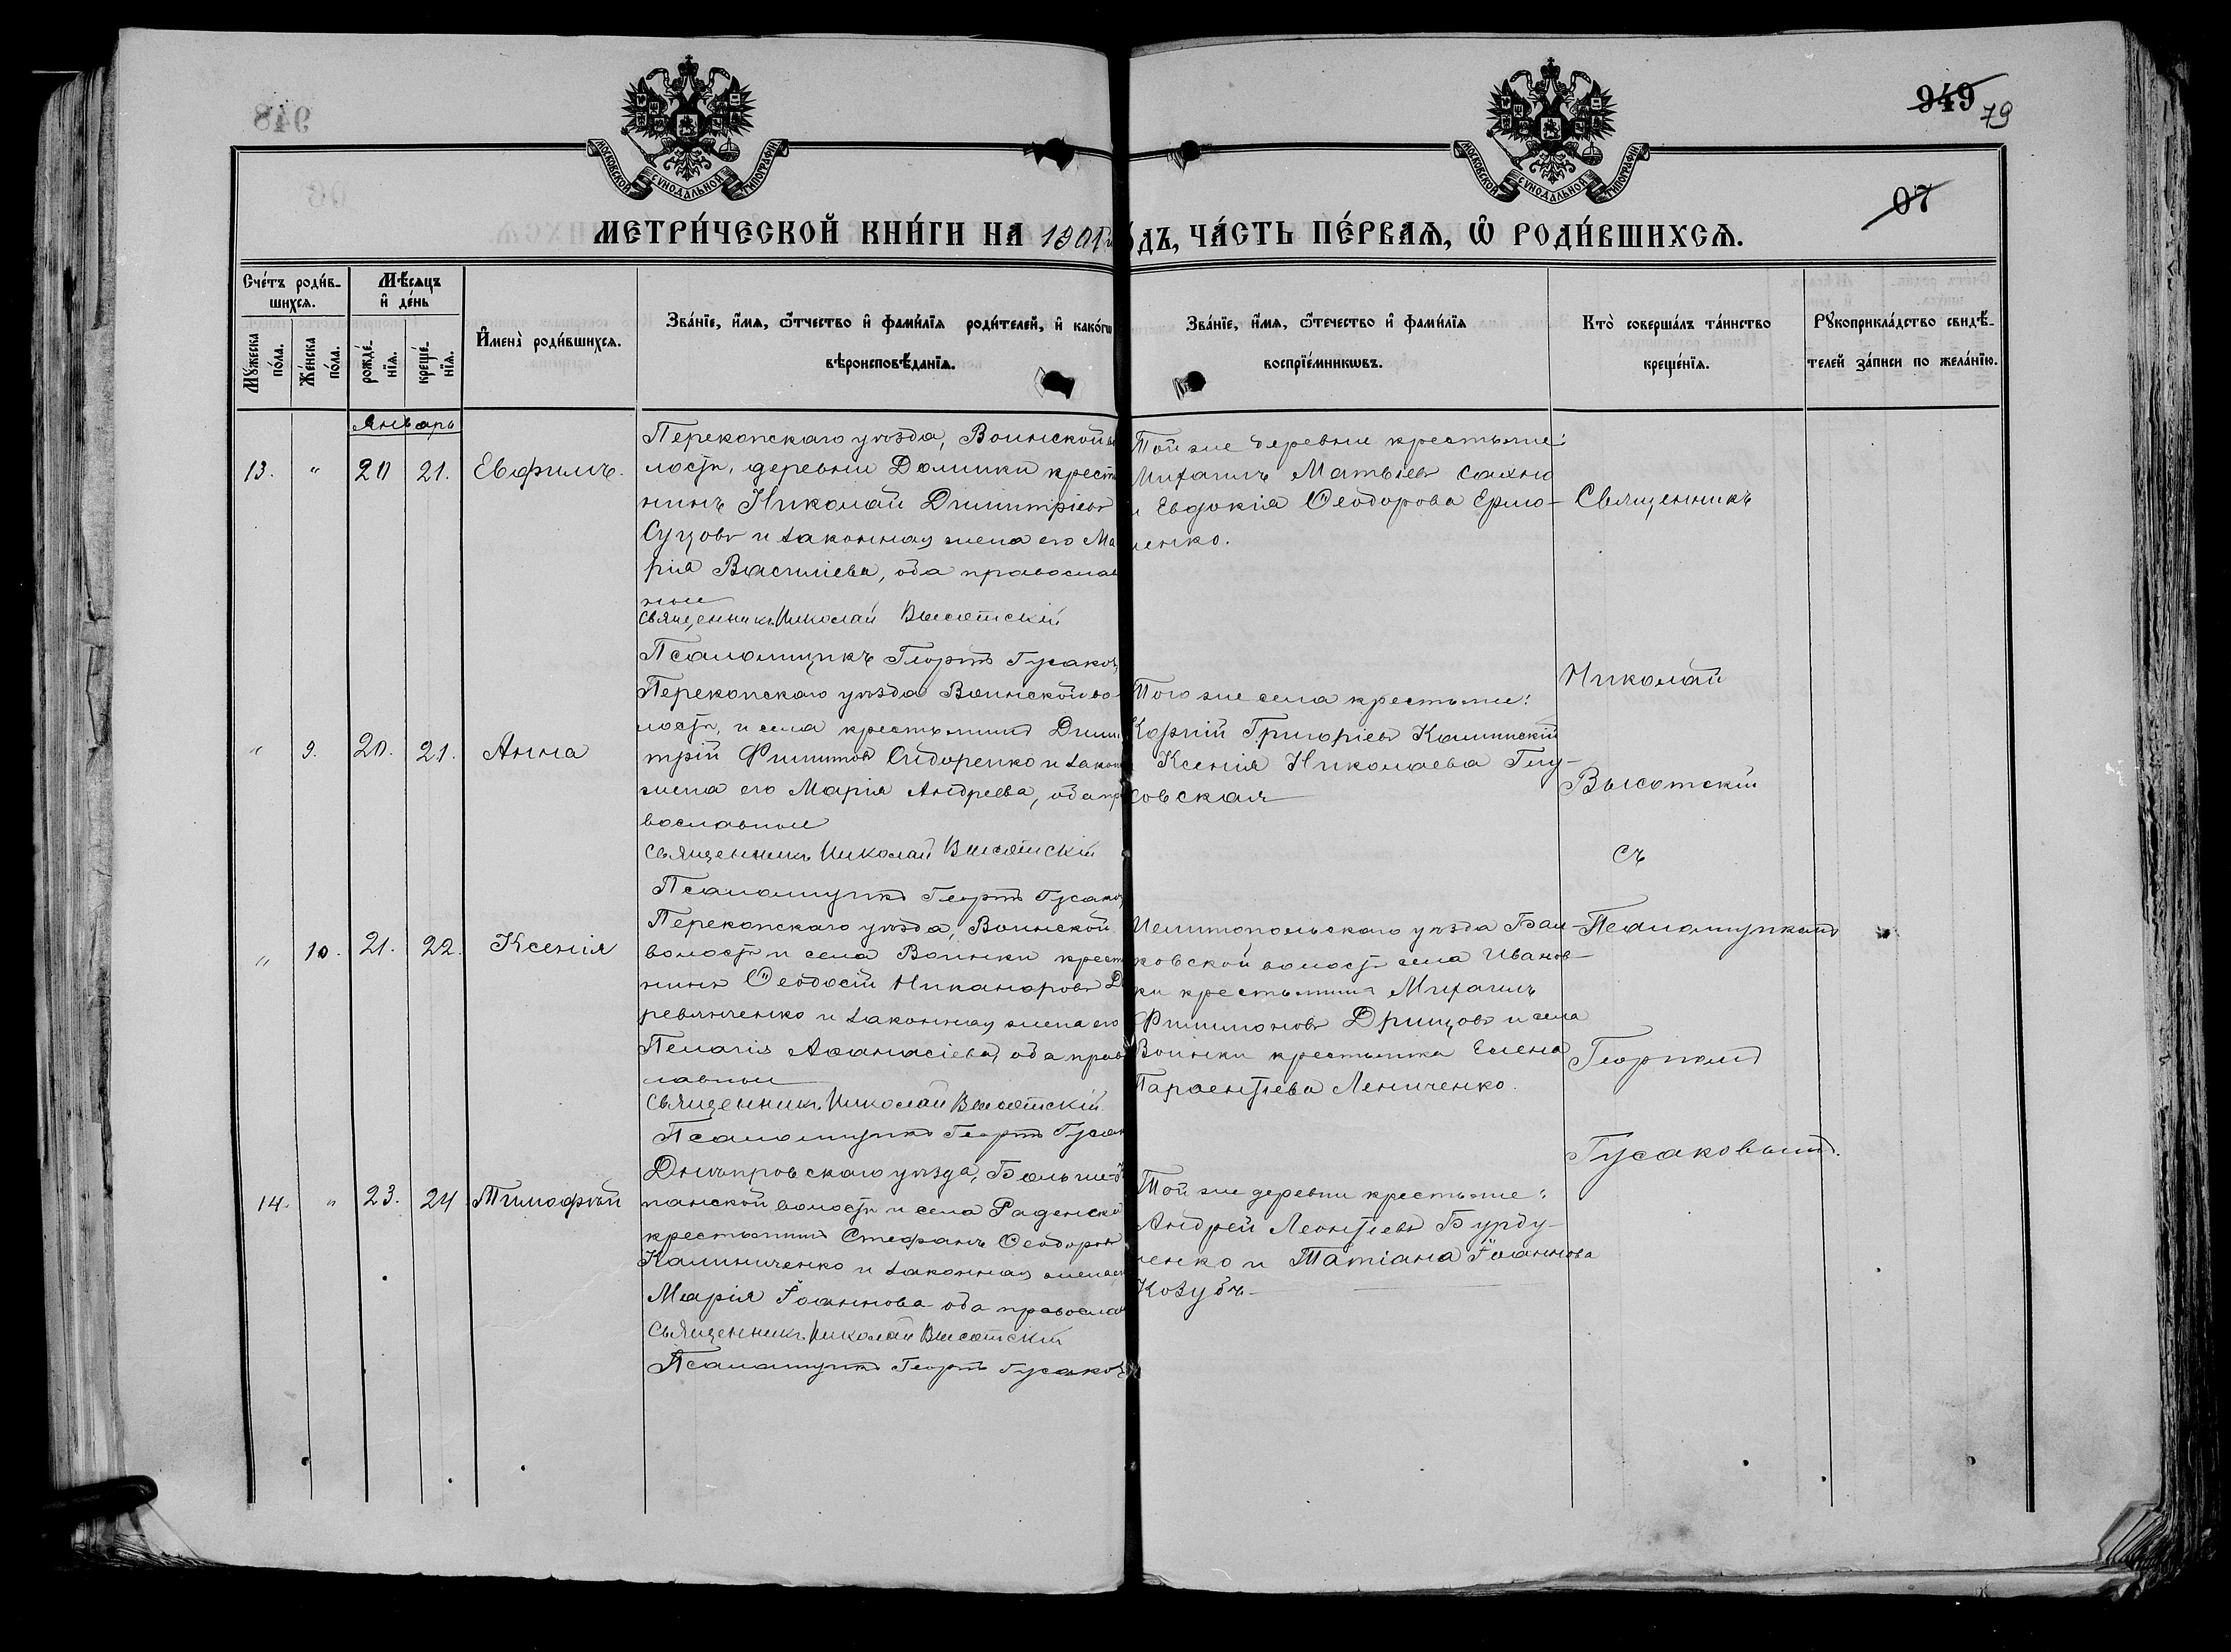 948
949
79
07
МОСКОВСКОЙ СѴНОДАЛЬНОЙ ТИПОГРАФІИ
МОСКОВСКОЙ СѴНОДАЛЬНОЙ ТИПОГРАФІИ
МЕТРИ́ЧЕСКОЙ КНИ́ГИ НА 1901 ГО́ДЪ, ЧА́СТЬ ПЕ́РВАѦ, Ѡ҆ РОДИ́ВШИХСѦ.
Сче́тъ роди́в-
шихсѧ.
Мѣ́сѧцъ
и҆ де́нь
Мꙋ́жеска
по́ла.
Же́нска
по́ла.
рожде́-
нїѧ.
креще́-
нїѧ.
И҆мена̀ роди́вшихсѧ.
Зва́нїе, и҆́мѧ, ѻ҆́тчество и҆ фами́лїѧ роди́телей, и҆ како́гѡ
вѣроисповѣ́данїѧ.
Зва́нїе, и҆́мѧ, ѻ҆те́чество и҆ фами́лїѧ
воспрїе́мникѡвъ.
Кто̀ соверша́лъ та́инство
креще́нїѧ.
Рꙋкоприкла́дство свидѣ́-
телей за́писи по жела́нїю.
Январь
13. " 20 21. Евфимъ.
Перекопскаго уѣзда, Воинской во
лости, деревни Долинки крестья
нинъ Николай Димитріевъ
и законная жена его Ма
рія Василіева, оба православ
ные
Священникъ Николай Высотскій
Псаломщикъ Георгій Гусаковъ
Той же деревни крестьяне:
Михаилъ Матвіевъ Сахно
и Евдокія Ѳеодорова Ермо-
ленко.
" 9. 20. 21. Анна
Перекопскаго уѣзда Воинской во-
лости, и села крестьянинъ Дими
трій Филиповъ Сидоренко и закон
жена его Марія Андреева, оба пра
вославные
Священникъ Николай Высотскій
Псаломщикъ Георгій Гусаков
Того же села крестьяне:
Корній Григоріевъ Калинскій
Ксенія Николаева Глу-
совская
" 10. 21. 22. Ксенія
Перекопскаго уѣзда, Воинской
волости и села Воинки крест
нинъ Ѳеодосій Никаноровъ Де
ревянченко и законная жена его
Пелагія Аѳанасіева, оба прав
лавные
Священникъ Николай Высотскій
Псаломщикъ Георгій Гусак
Мелитопольскаго уѣзда Бал-
ковской волости села Иванов-
ки крестьянинъ Михаилъ
Филимоновъ Дрищовъ и села
Воинки крестьянка Елена
Параентіева Лениченко.
14. " 23. 24 Тимофѣй
Днѣпровскаго уѣзда, Больше-
панской волости и села Раденск
крестьянинъ Стефанъ Ѳеодоровъ
Калиниченко и законная жена его
Марія Іоаннова оба православ
Священникъ Николай Высотскій
Псаломщикъ Георгій Гусаковъ
Той же деревни крестьяне:
Андрей Леонтіевъ Бурду-
ченко и Татіана Іоаннова
Козубъ
Священникъ
Николай
Высотскій
съ
Псаломщикомъ
Георгіемъ
Гусаковымъ.